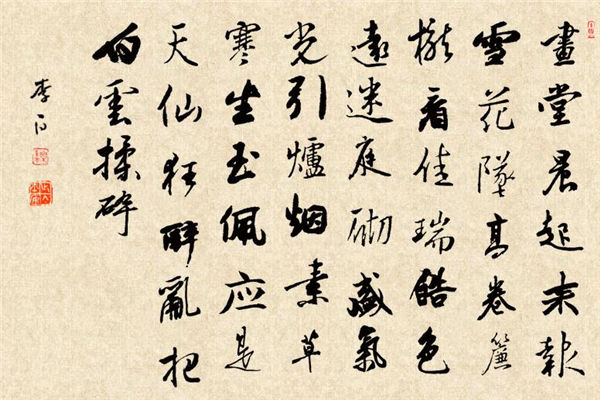 畫堂晨起来報
雪花墜高卷簾
櫳看佳瑞皓色
遠迷庭砌盛氣
光引爐烟素草
寒生玉佩应是
天仙狂醉亂把
白雲揉碎
李白